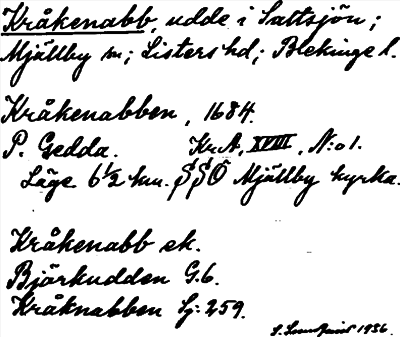 Kråkenabb, udde i Saltsjön;
Mjällby sn; Listers hd; Blekinge l.
Kråkenabben, 1684.
P. Gedda. KrA, XVIII, N:o 1.
Läge 6 1/2 km. SSO Mjällby kyrka.
Kråkenabb ek.
Björkudden G.6.
Kråknabben Sj: 259.
S. 1936.